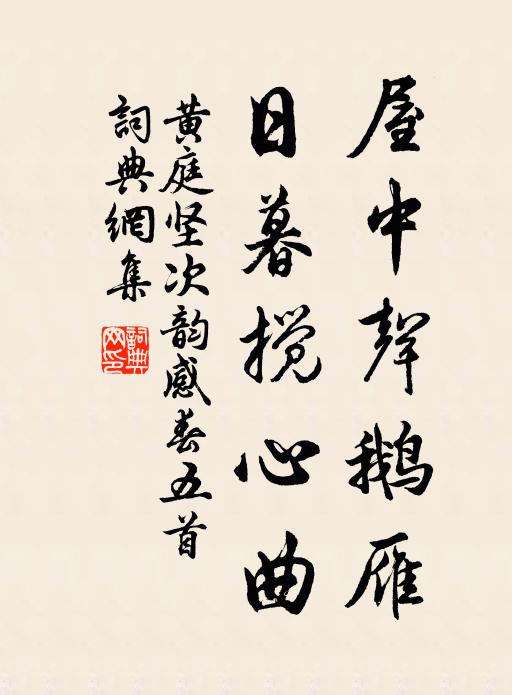 屋中聲鹅雁
日暮搅心曲
黄庭坚次韵感春五首
詞典網集
詞典
网印